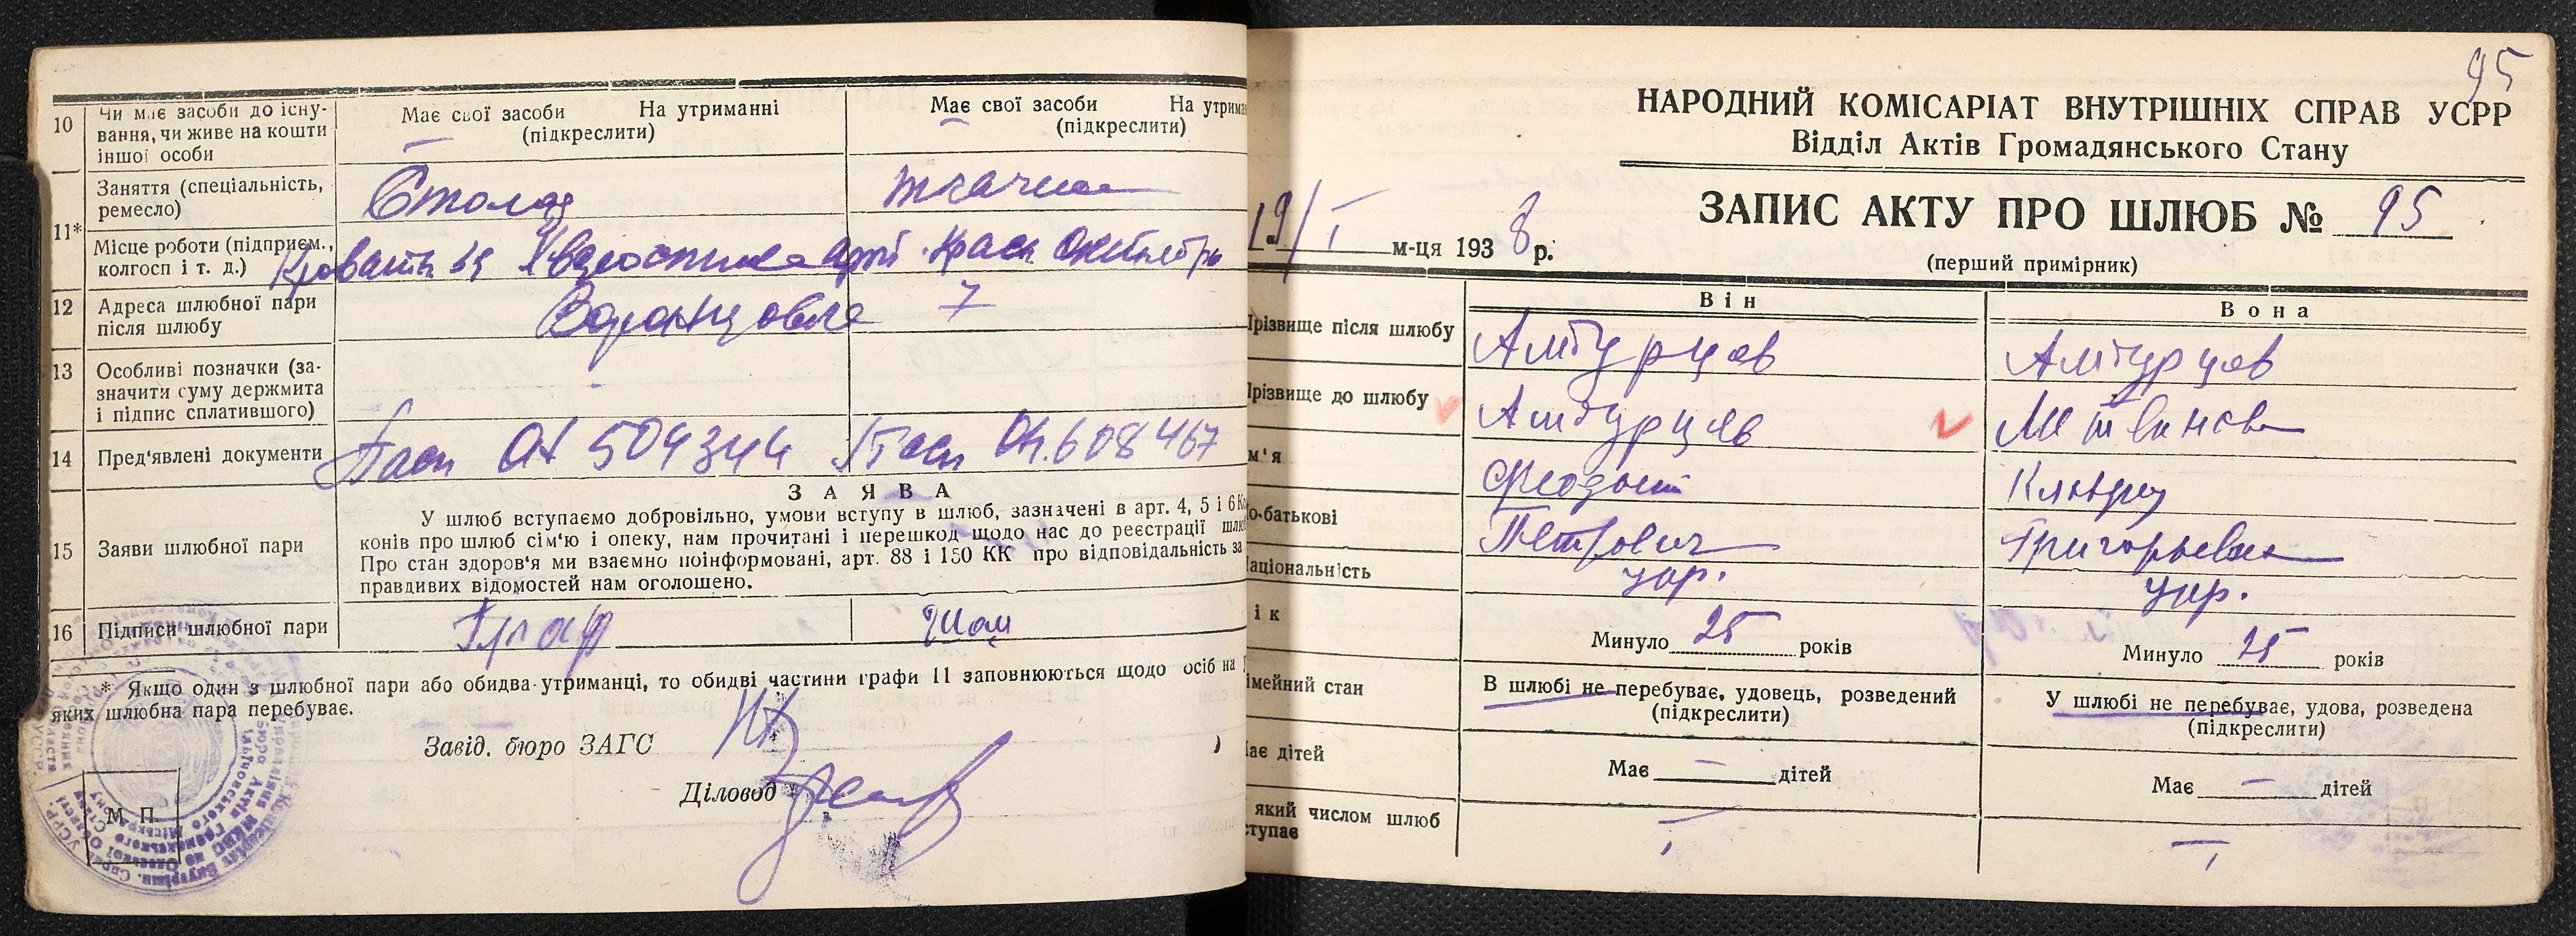 10
Чи має засоби до існу-
вання, чи живе на кошти
іншої особи
Має свої засоби На утриманні
(підкреслити)
Має свої засоби На утрима
(підкреслити)
11*
Заняття (спеціальність,
ремесло)
Столяр
ткачиха
Місце роботи (підприєм.,
колгосп і т. д.)
Красн Октябрь
12
Адреса шлюбної пари
після шлюбу
Воронцовка 7
13
Особливі позначки (за-
значити суму держмита
і підпис сплатившого)
14
Пред'явлені документи
Пасп 504344
Пасп 608467
15
Заяви шлюбної пари
ЗАЯВА
У шлюб вступаємо добровільно, умови вступу в шлюб, зазначені в арт. 4, 5 і 6 Ко
конів про шлюб сім'ю і опеку, нам прочитані і перешкод щодо нас до реєстрації шлю
Про стан здоров'я ми взаємно поінформовані, арт. 88 і 150 КК про відповідальність за
правдивих відомостей нам оголошено.
16
Підписи шлюбної пари
* Якщо один з шлюбної пари або обидва утриманці, то обидві частини графи 11 заповнюються щодо осіб на
яких шлюбна пара перебуває.
Завід. бюро ЗАГС
Діловод
М. П.
95
НАРОДНИЙ КОМІСАРІАТ ВНУТРІШНІХ СПРАВ УСРР
Відділ Актів Громадянського Стану
ЗАПИС АКТУ ПРО ШЛЮБ № 95
19/I м-ця 1938 р.
(перший примірник)
Він
Вона
Прізвище після шлюбу
Амбурцев
Амбурцев
Прізвище до шлюбу
Амбурцев
м'я
Феодосий
Клавдия
о-батькові
Петрович
Григорьевна
аціональність
укр.
укр.
ік
Минуло 25 років
Минуло 25 років
імейний стан
В шлюбі не перебуває, удовець, розведений
(підкреслити)
У шлюбі не перебуває, удова, розведена
(підкреслити)
ає дітей
Має — дітей
Має — дітей
який числом шлюб
ступає
I
I